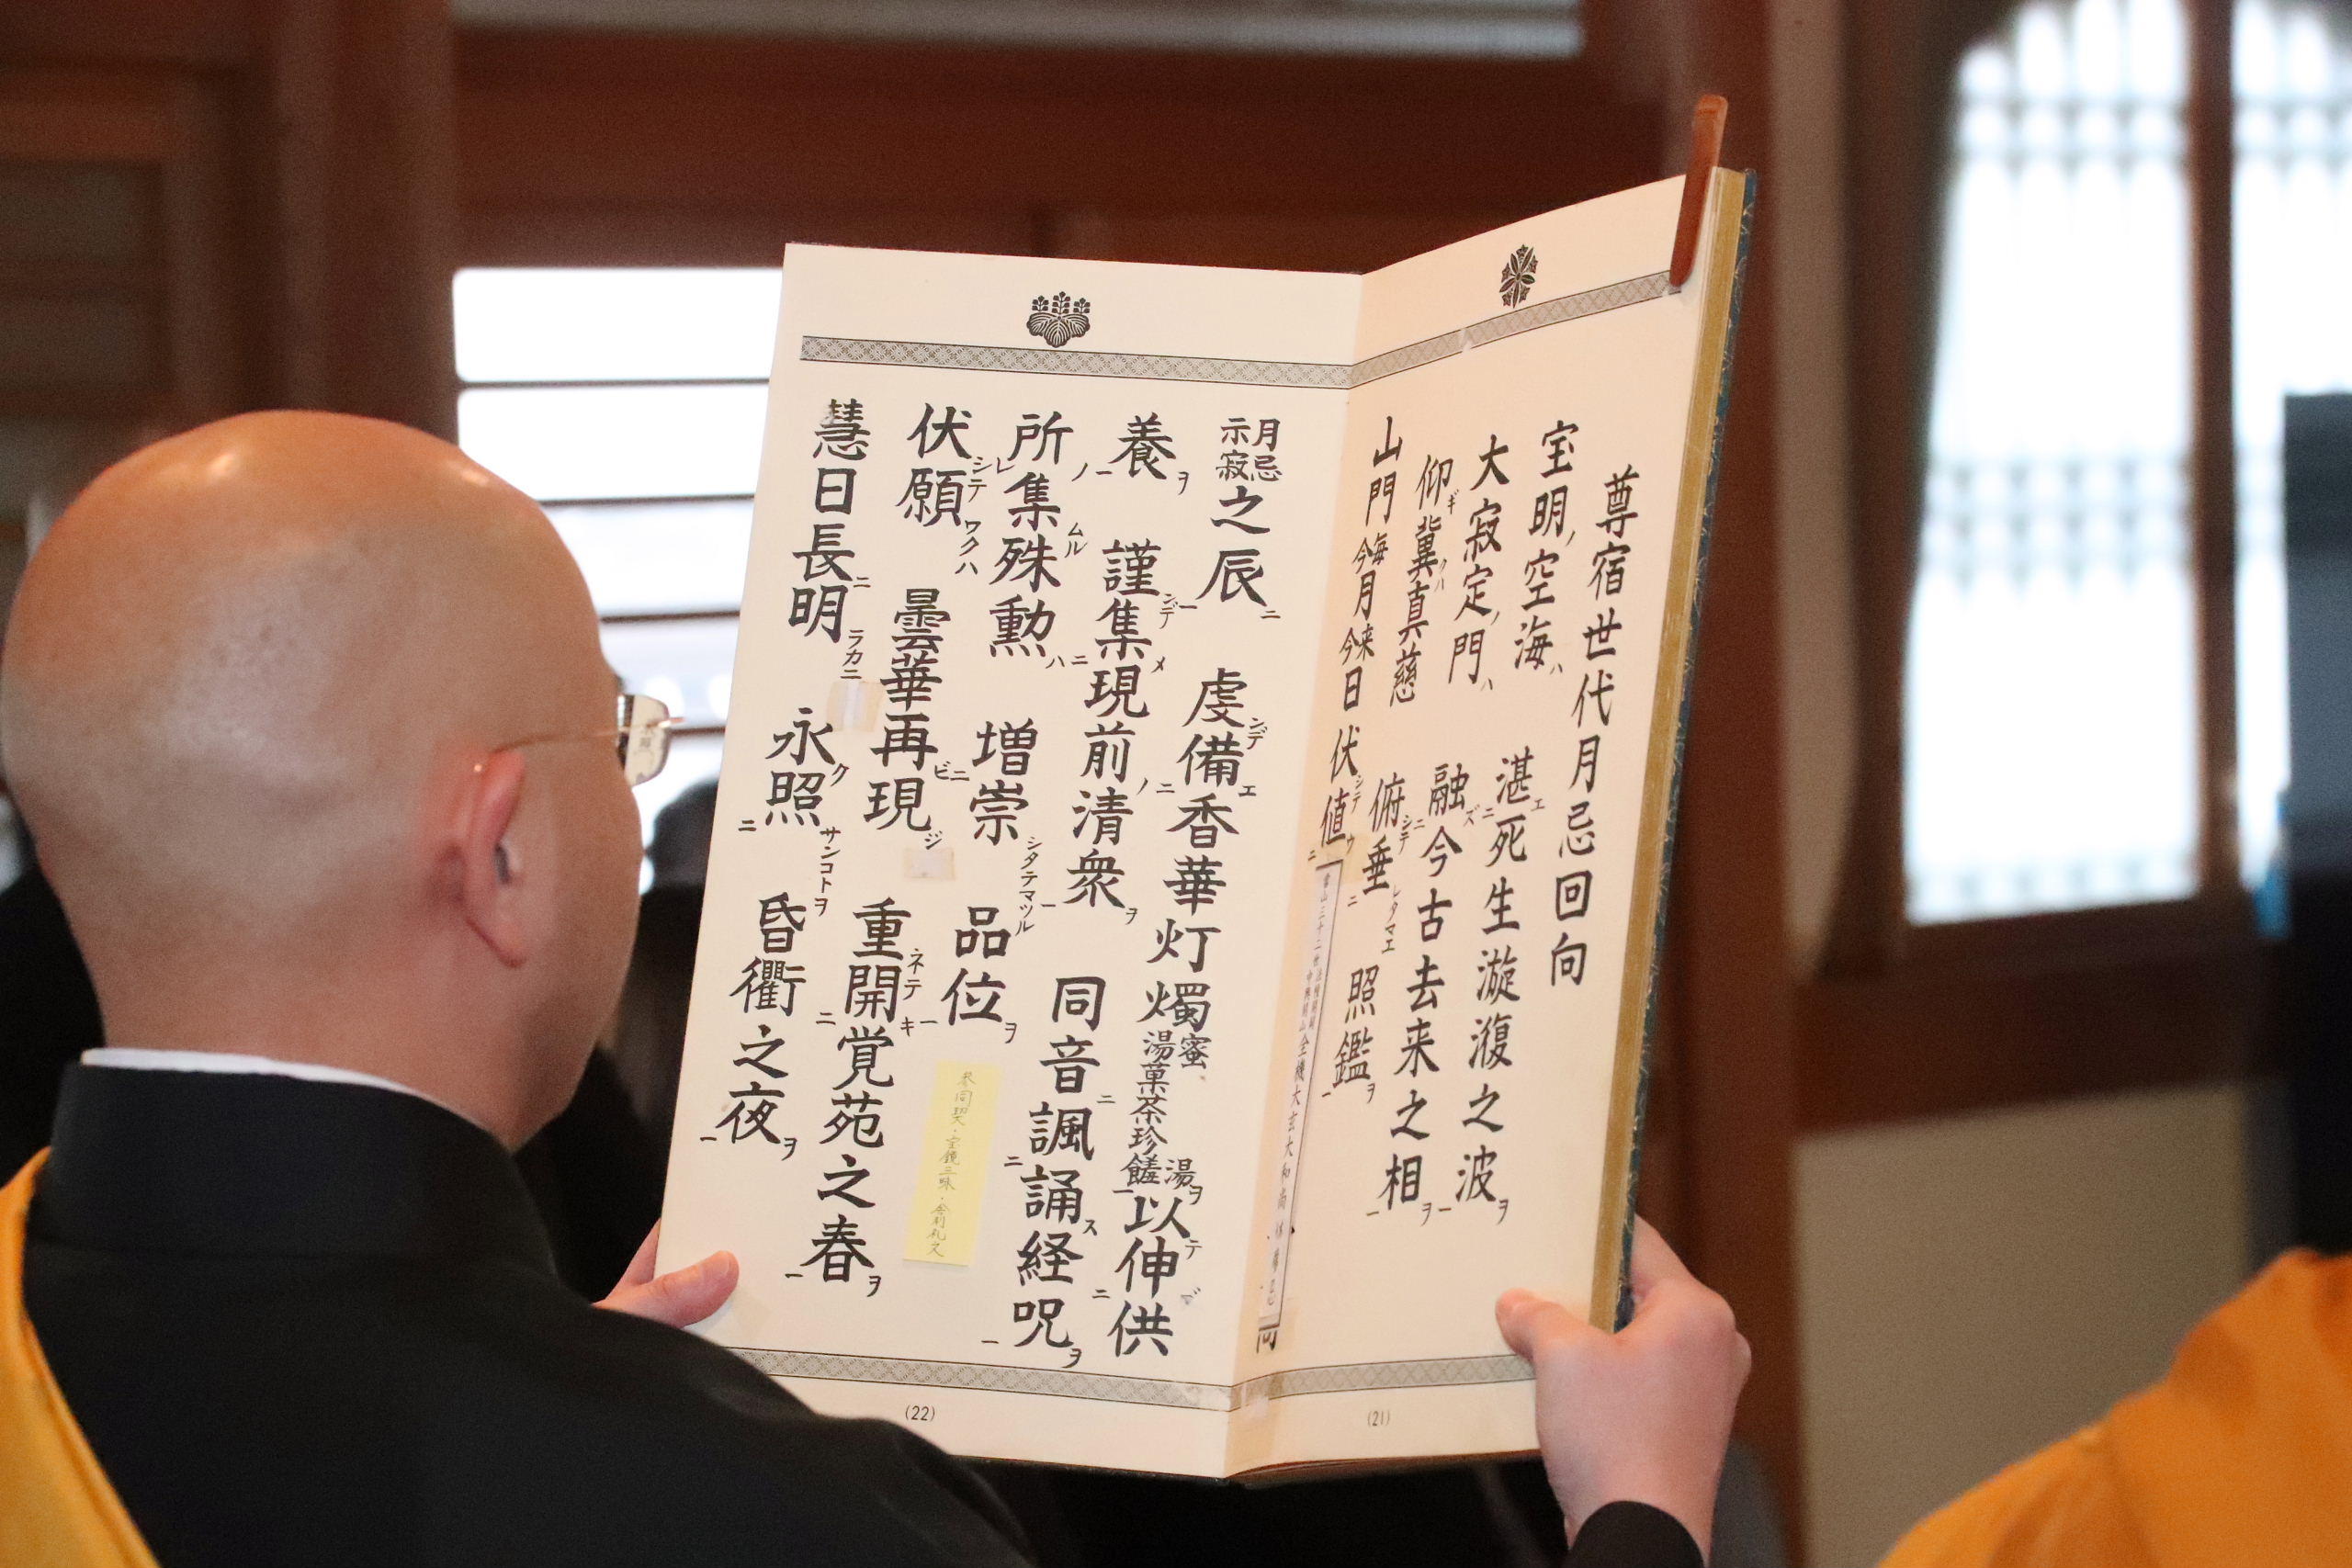 尊宿世代月忌回向
宝明ノ空海ハ 湛エ死生漩澓之波ヲ
大寂定ノ門ハ 融今古去来之相ヲ
仰ギ冀クハ真慈 俯シテ垂レタマエ 照鑑ヲ
山門今海月今来日 伏シテ値ウ
月忌示寂之辰ニ 虔ンデ備エ香華灯燭蜜湯菓茶珍饈湯ヲ以テ伸供
養ヲ 謹ンデ集メ現前ノ清衆ヲ 同音ニ諷誦ス経呪ヲ
所ノ集ムル殊勲ハ 増崇シタテマツル 品位ヲ
伏シテ願ワクハ 曇華再ビ現ジ 重ネテ開キ覚苑之春ヲ
慧日長ニ明ラカニ 永ク照サンコトヲ 昏衢之夜ヲ
参同契・宝鏡三昧・舎利礼文
(22)
(21)